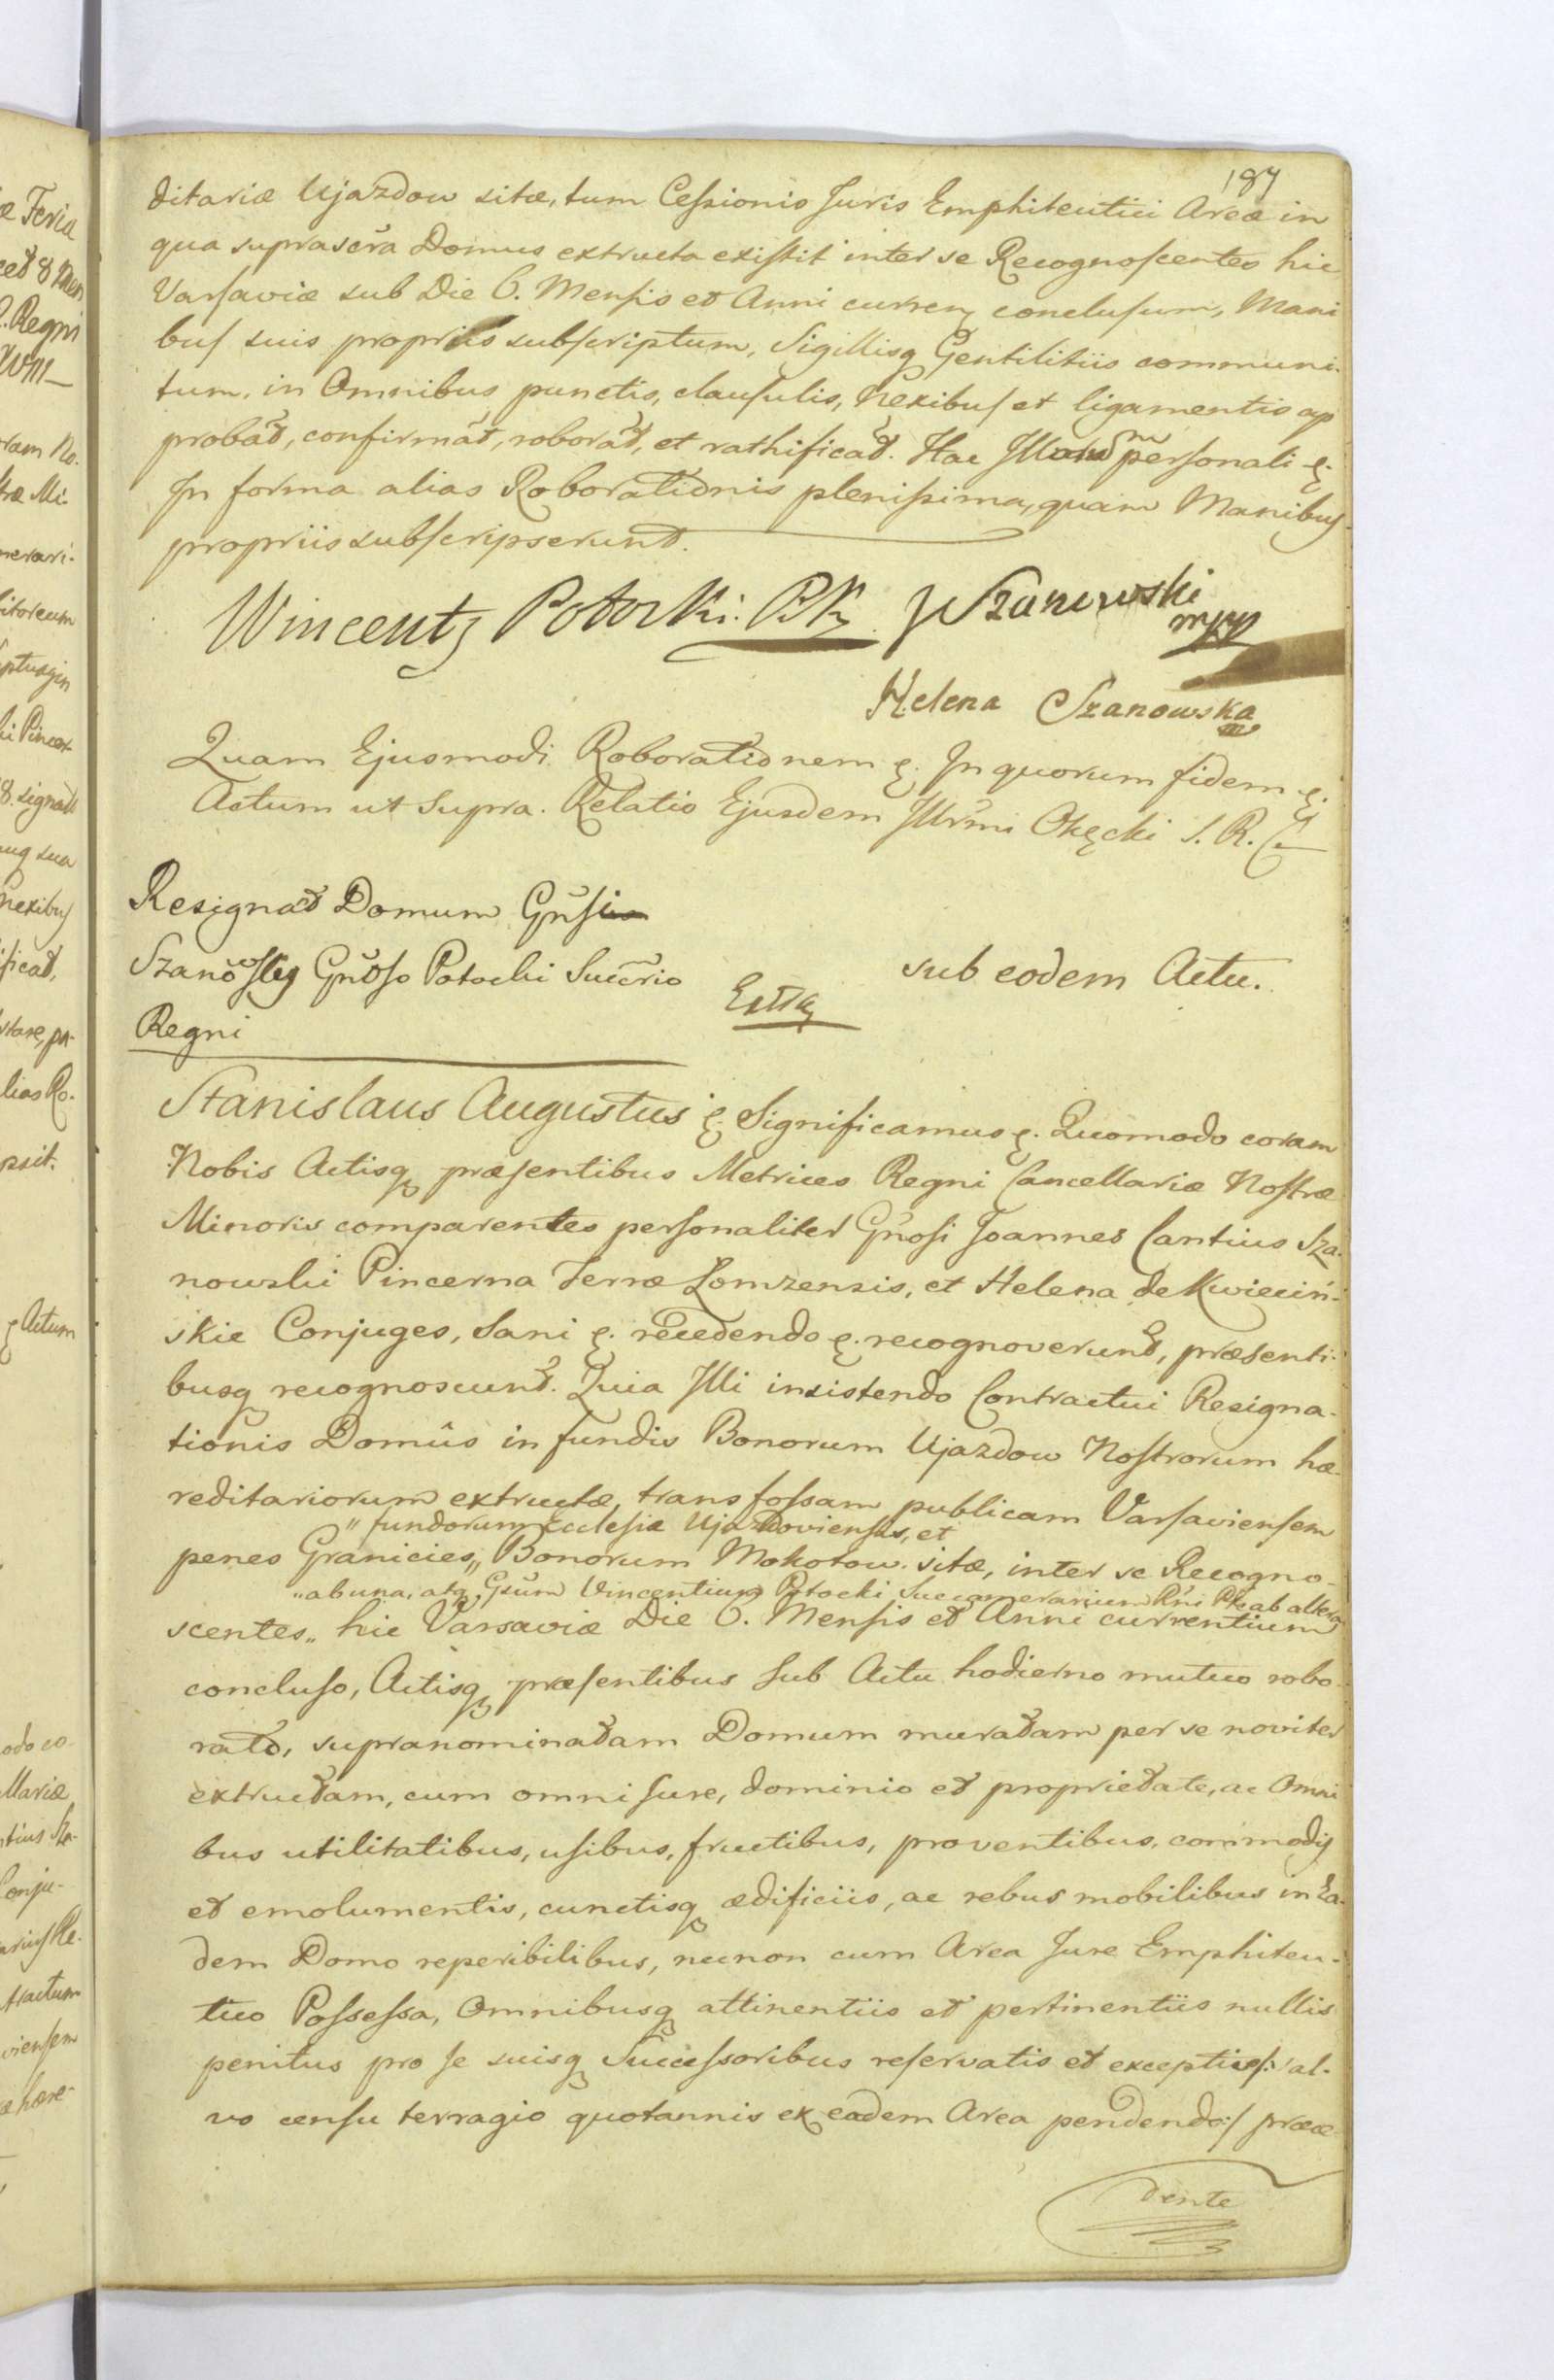 187
ditariæ Ujazdow sitæ, tum Cessionis Juris Emphiteutici Areæ in
qua suprascrã Domus extructa existit inter se Recognoscentes hic
Varsaviæ sub Die 6. Mensis et Anni curren conclusum, Mani
bus suis propriis subscriptum, Sigillisq Gentilitiis communi-
tum, in Omnibus punctis, clausulis, Nexibus et ligamentis ap
probat, confirmat, roborat, et rathificat. Hac personali
In forma alias Roborationis plenissima, quam Manibus
propriis subscripserunt.
Wincenty Potocki. PK JSzanowski
mpp
Helena Szanowska
Quam Ejusmodi Roborationem In quorum fidem
Actum ut Supra. Relatio Ejusdem Okęcki S. R.
Resignat Domum
Potocki
Regni
sub eodem Actu.
Stanislaus Augustus Significamus Quomodo coram
Nobis Actisq præsentibus Metrices Regni Cancellariæ Nostræ
Minoris comparentes personaliter Gnosi Joannes Cantius Sza-
nowski Pincerna Terræ Lomzensis, et Helena de Kwieciń-
skie Conjuges, Sani recedendo recognoverunt, præsenti-
busq recognoscunt. Quia Illi insistendo Contractui Resigna-
tionis Domûs in fundis Bonorum Ujazdow Nostrorum hæ-
reditariorum extructæ, trans fossam publicam Varsaviensem
" fundorum Ecclesiæ Ujazdoviensis, et
penes Granicies " Bonorum Mokotow sitæ, inter se Recogno-
" ab una, atq Gsum Vincentium Potocki Succamerarium Rni ab altera
scentes " hic Varsaviæ Die 6. Mensis et Anni currentium
concluso, Actisq præsentibus Sub Actu hodierno mutuo robo-
rato, supranominatam Domum muratam per se noviter
extructam, cum omni Jure, dominio et proprietate, ac Omni
bus utilitatibus, usibus, fructibus, proventibus, commodis
et emolumentis, cunctisq ædificiis, ac rebus mobilibus in Ea-
dem Domo reperibilibus, necnon cum Area Jure Emphiteu-
tico Possessa, Omnibusq attinentiis et pertinentiis nullis
penitus pro se suisq Successoribus reservatis et exceptis /: sal-
vo censu terragio quotannis ex eadem Area pendendo :/ præce-
dente